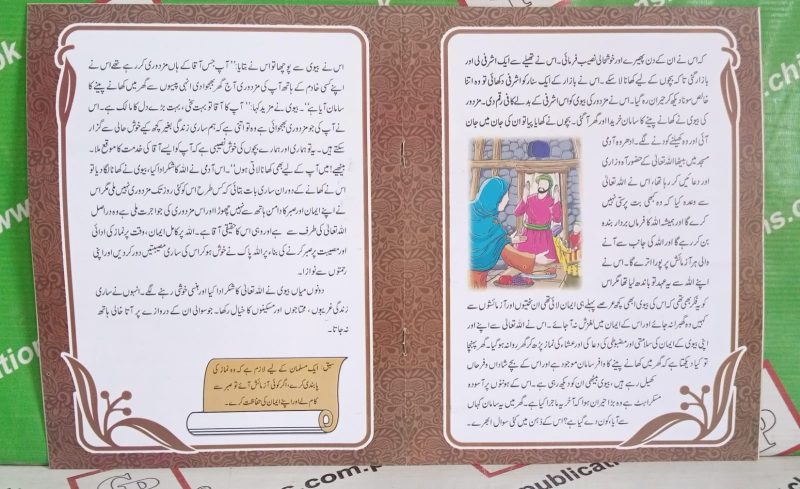 کہ اس نے ان کے دن پھیرے اور خوشحالی نصیب فرمائی۔ اس نے تھیلے سے ایک اشرفی لی اور
بازار گئی تاکہ بچوں کے لیے کھانا لا سکے۔ اس نے بازار کے ایک سنار کو اشرفی دکھائی تو وہ اتنا
خالص سونا دیکھ کر حیران رہ گیا۔ اس نے مزدور کی بیوی کو اس اشرفی کے بدلے کافی رقم دی۔ مزدور
کی بیوی نے کھانے پینے کا سامان خریدا اور گھر آ گئی۔ بچوں نے کھایا پیا تو ان کی جان میں جان
آئی اور وہ کھیلنے کودنے لگے۔ ادھر وہ آدمی
مسجد میں بیٹھا اللہ تعالیٰ کے حضور آہ و زاری
اور دعائیں کر رہا تھا، اس نے اللہ تعالیٰ
سے وعدہ کیا کہ وہ کبھی بت پرستی نہیں
کرے گا اور ہمیشہ اللہ کا فرماں بردار بندہ
بن کر رہے گا اور اللہ کی جانب سے آنے
والی ہر آزمائش پر پورا اترے گا۔ اس نے
اپنے اللہ سے یہ عہد تو باندھ لیا تھا مگر اس
کو یہ فکر بھی تھی کہ اس کی بیوی ابھی کچھ عرصے پہلے ہی ایمان لائی تھی ان سختیوں اور آزمائشوں سے
کہیں وہ گھبرا نہ جائے اور اس کے ایمان میں لغزش نہ آ جائے۔ اس نے اللہ تعالیٰ سے اپنے اور
اپنی بیوی کے ایمان کی سلامتی اور مضبوطی کی دعا کی اور عشاء کی نماز پڑھ کر گھر روانہ ہو گیا۔ گھر پہنچا
تو کیا دیکھتا ہے کہ گھر میں کھانے پینے کا وافر سامان موجود ہے اور اس کے بچے شاداں و فرحاں
کھیل رہے ہیں، بیوی بیٹھی ان کو دیکھ رہی ہے۔ اس کے ہونٹوں پر آسودہ
مسکراہٹ ہے وہ بڑا حیران ہوا کہ آخر یہ ماجرا کیا ہے۔ گھر میں یہ سامان کہاں
سے آیا، کون دے گیا ہے؟ اس کے ذہن میں کئی سوال ابھرے۔
اس نے بیوی سے پوچھا تو اس نے بتایا: ”آپ جس آقا کے ہاں مزدوری کر رہے تھے اس نے
اپنے کسی خادم کے ہاتھ آپ کی مزدوری آج گھر بھجوا دی انہی پیسوں سے گھر میں کھانے پینے کا
سامان آیا ہے“۔ بیوی نے مزید کہا: ”آپ کا آقا تو بہت سخی، بہت بڑے دل کا مالک ہے۔ اس
نے آپ کی جو مزدوری بھجوائی ہے وہ تو اتنی ہے کہ ہم ساری زندگی بغیر کچھ کیے خوش حالی سے گزار
سکتے ہیں۔ یہ تو ہماری اور ہمارے بچوں کی خوش نصیبی ہے کہ آپ کو ایسے آقا کی خدمت کا موقع ملا۔
بیٹھیے! میں آپ کے لیے بھی کھانا لاتی ہوں“۔ اس آدمی نے اللہ کا شکر ادا کیا، بیوی نے کھانا لگا دیا تو
اس نے کھانے کے دوران ساری بات بتائی کہ کس طرح اس کو کئی روز تک مزدوری نہیں ملی مگر اس
نے اپنے ایمان اور صبر کا دامن ہاتھ سے نہیں چھوڑا اور اس مزدوری کی جو اجرت ملی ہے وہ دراصل
اللہ تعالیٰ کی طرف سے ہے اور وہی اس کا حقیقی آقا ہے۔ اللہ پر کامل ایمان، وقت پر نماز کی ادائی
اور مصیبت پر صبر کرنے کی بناء پر اللہ پاک نے خوش ہو کر اس کی ساری مصیبتیں دور کر دیں اور اپنی
رحمتوں سے نوازا۔
دونوں میاں بیوی نے اللہ تعالیٰ کا شکر ادا کیا اور ہنسی خوشی رہنے لگے۔ انہوں نے ساری
زندگی غریبوں، محتاجوں اور مسکینوں کا خیال رکھا۔ جو سوالی ان کے دروازے پر آتا خالی ہاتھ
نہ جاتا۔
سبق: ایک مسلمان کے لیے لازم ہے کہ وہ نماز کی
پابندی کرے، اگر کوئی آزمائش آئے تو صبر سے
کام لے اور اپنے ایمان کی حفاظت کرے۔